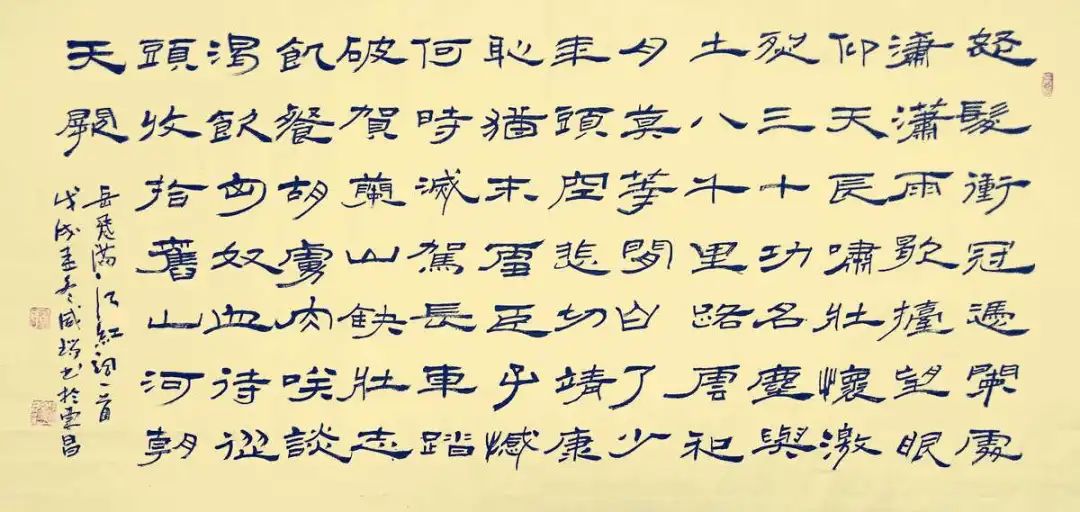 怒髮衝冠憑闌處
瀟瀟雨歇擡望眼
仰天長嘯壯懷激
烈三十功名塵與
土八千里路雲和
月莫等閒白了少
年頭空悲切靖康
恥猶未雪臣子憾
何時滅駕長車踏
破賀蘭山缺壯志
飢餐胡虜肉笑談
渴飲匈奴血待從
頭收拾舊山河朝
天闕
岳飛滿江紅詞一首
戊戌孟冬書於昌